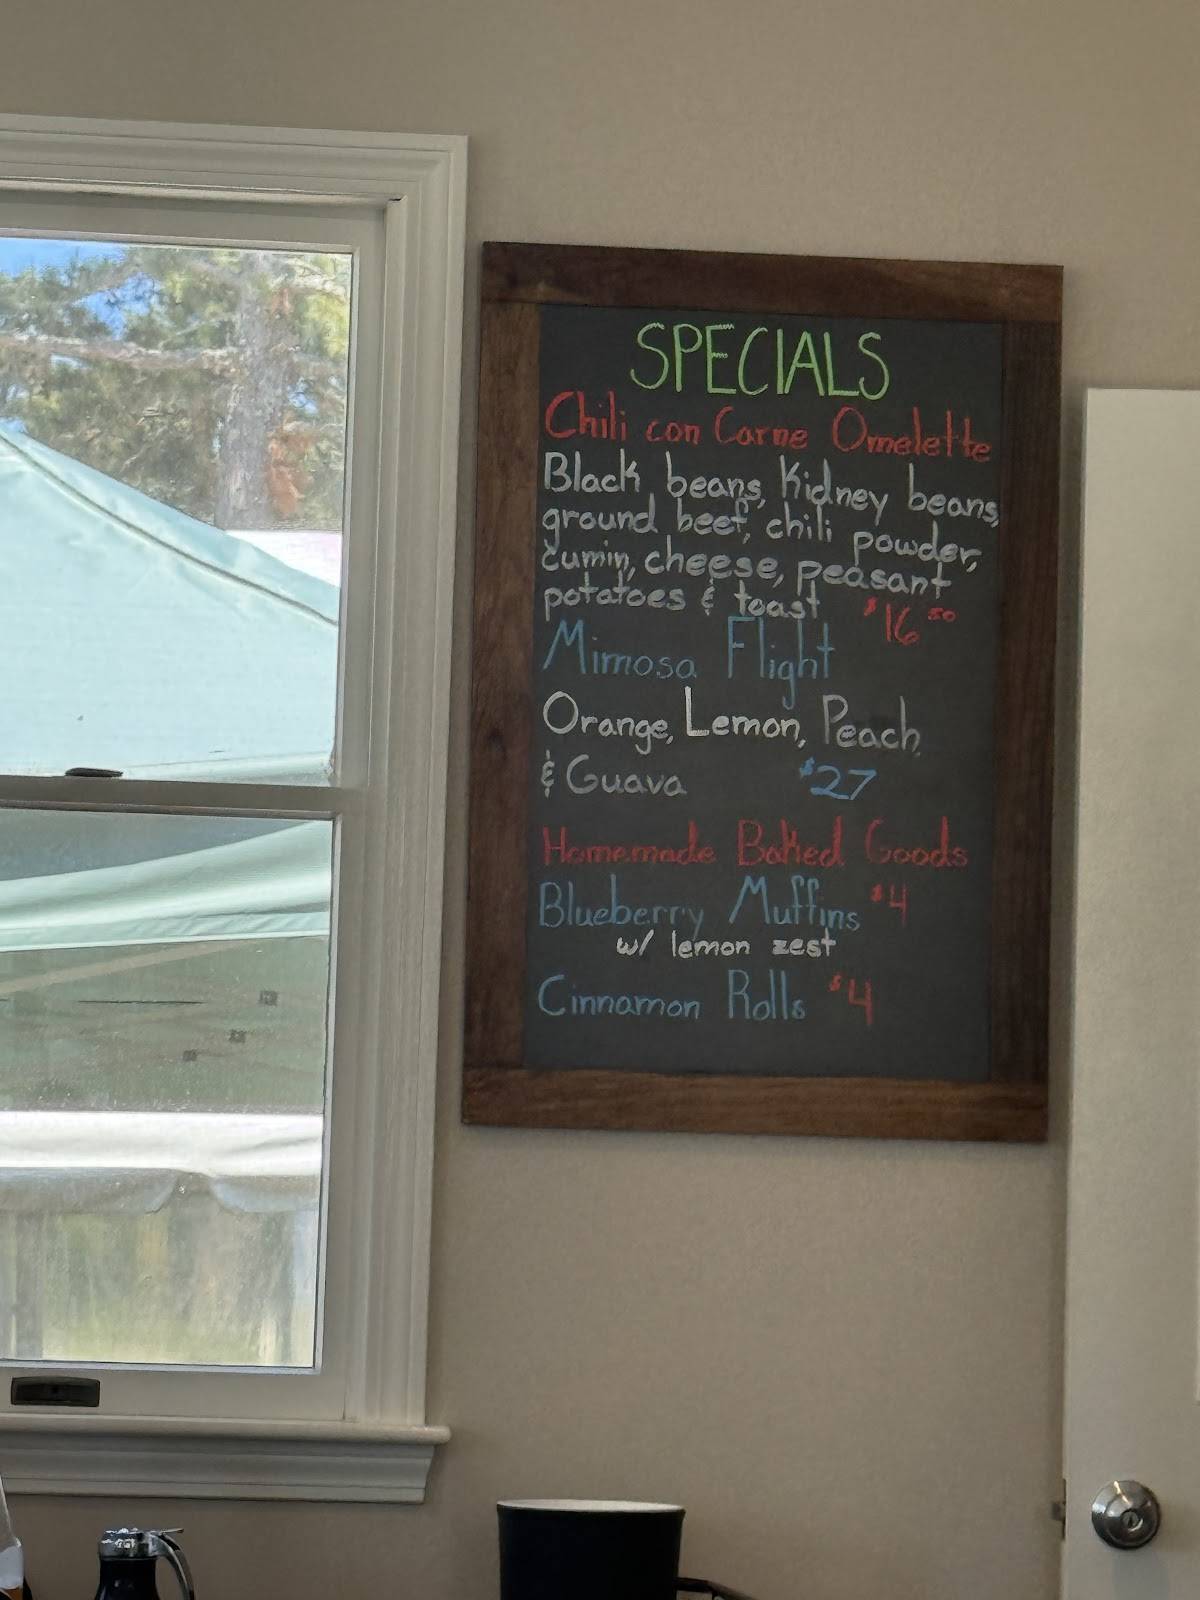 SPECIALS
Chili con Carne Omelette
Black beans, Kidney beans,
ground beef, chili powder,
cumin, cheese, peasant
potatoes & toast $16 50
Mimosa Flight
Orange, Lemon, Peach,
& Guava $27
Homemade Baked Goods
Blueberry Muffins $4
w/ lemon zest
Cinnamon Rolls $4